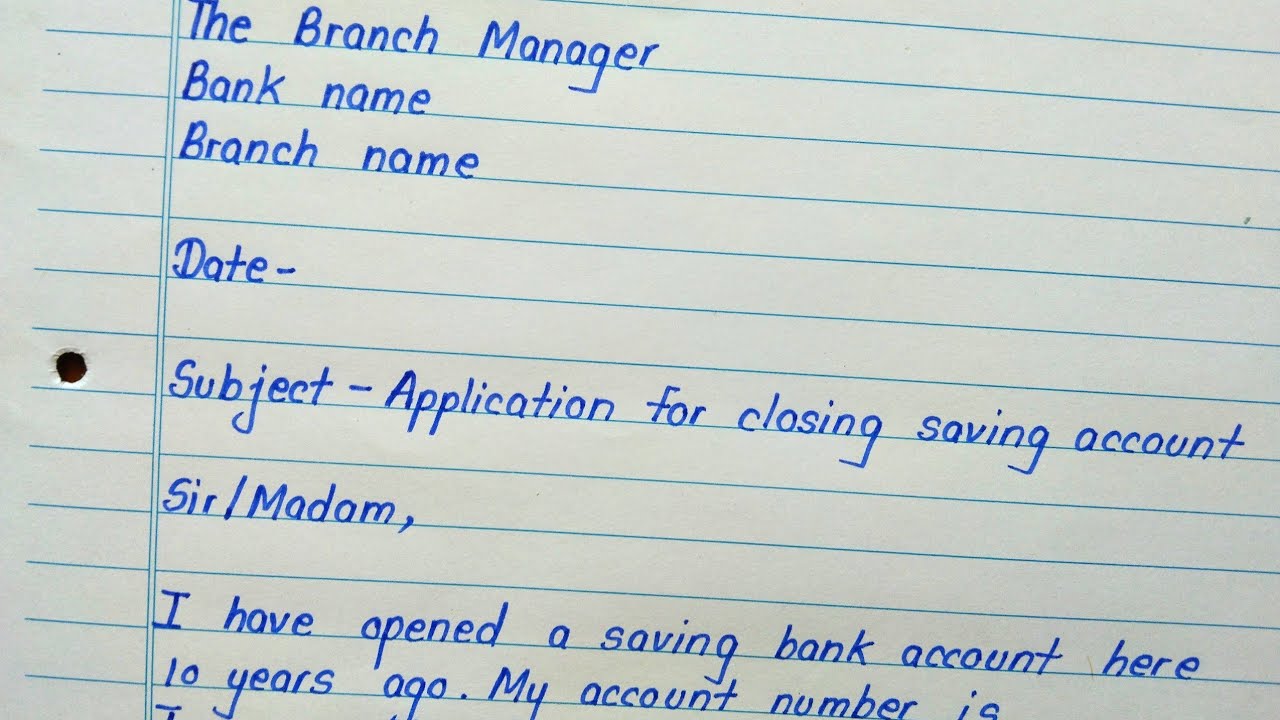 The Branch Manager
Bank name
Branch name
Date-
Subject - Application for closing saving account
Sir/Madam,
I have opened a saving bank account here
10 years ago. My account number is